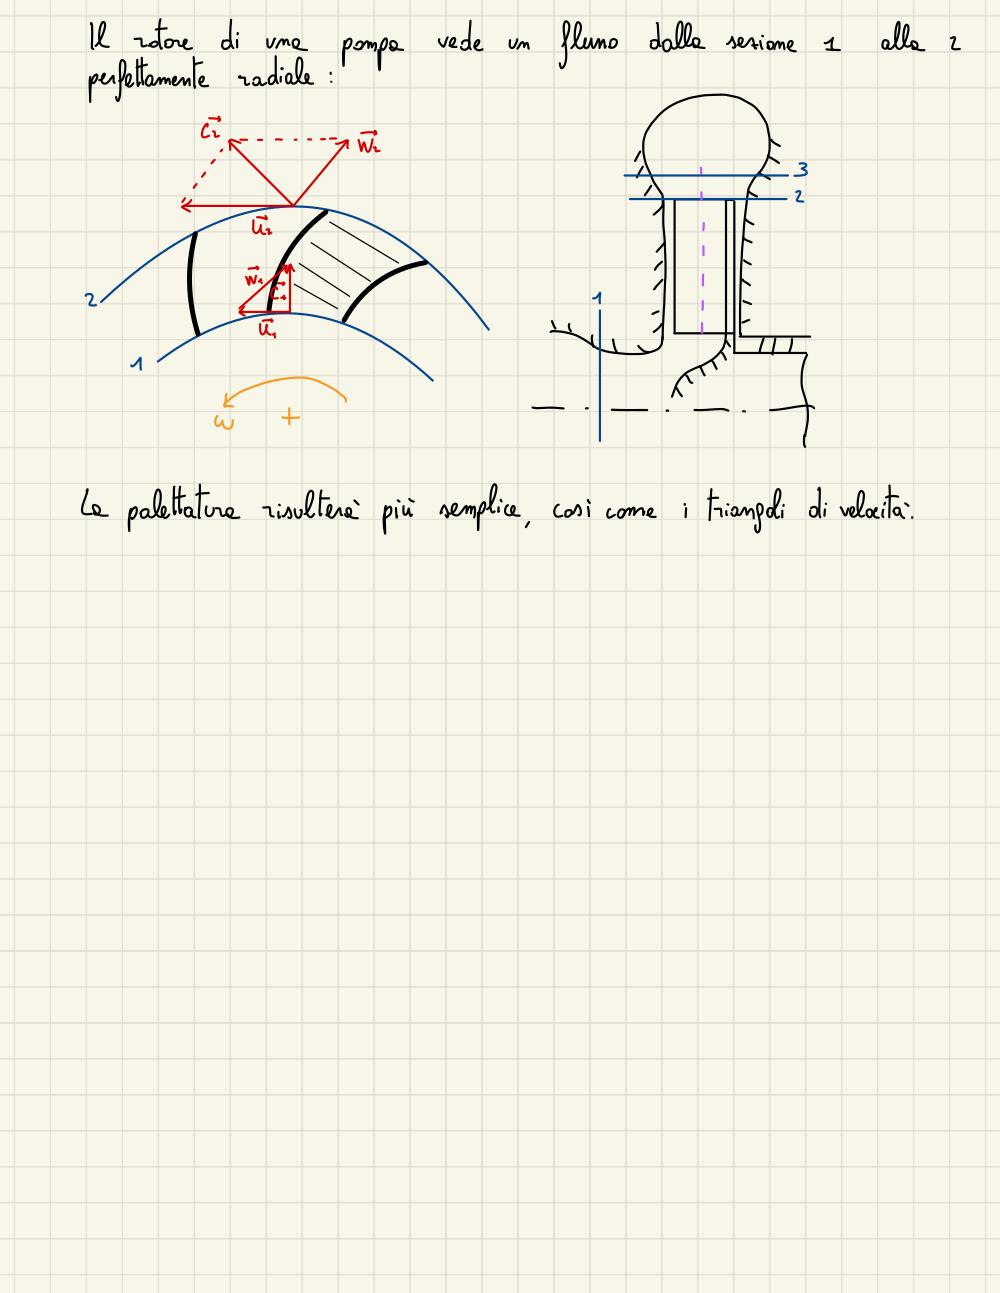 Il rotore di una pompa vede un flusso dalla sezione 1 alla 2
perfettamente radiale :
c2
w2
u2
w1
c1
u1
2
1
ω
+
3
2
1
La palettatura risulterà più semplice, così come i triangoli di velocità.